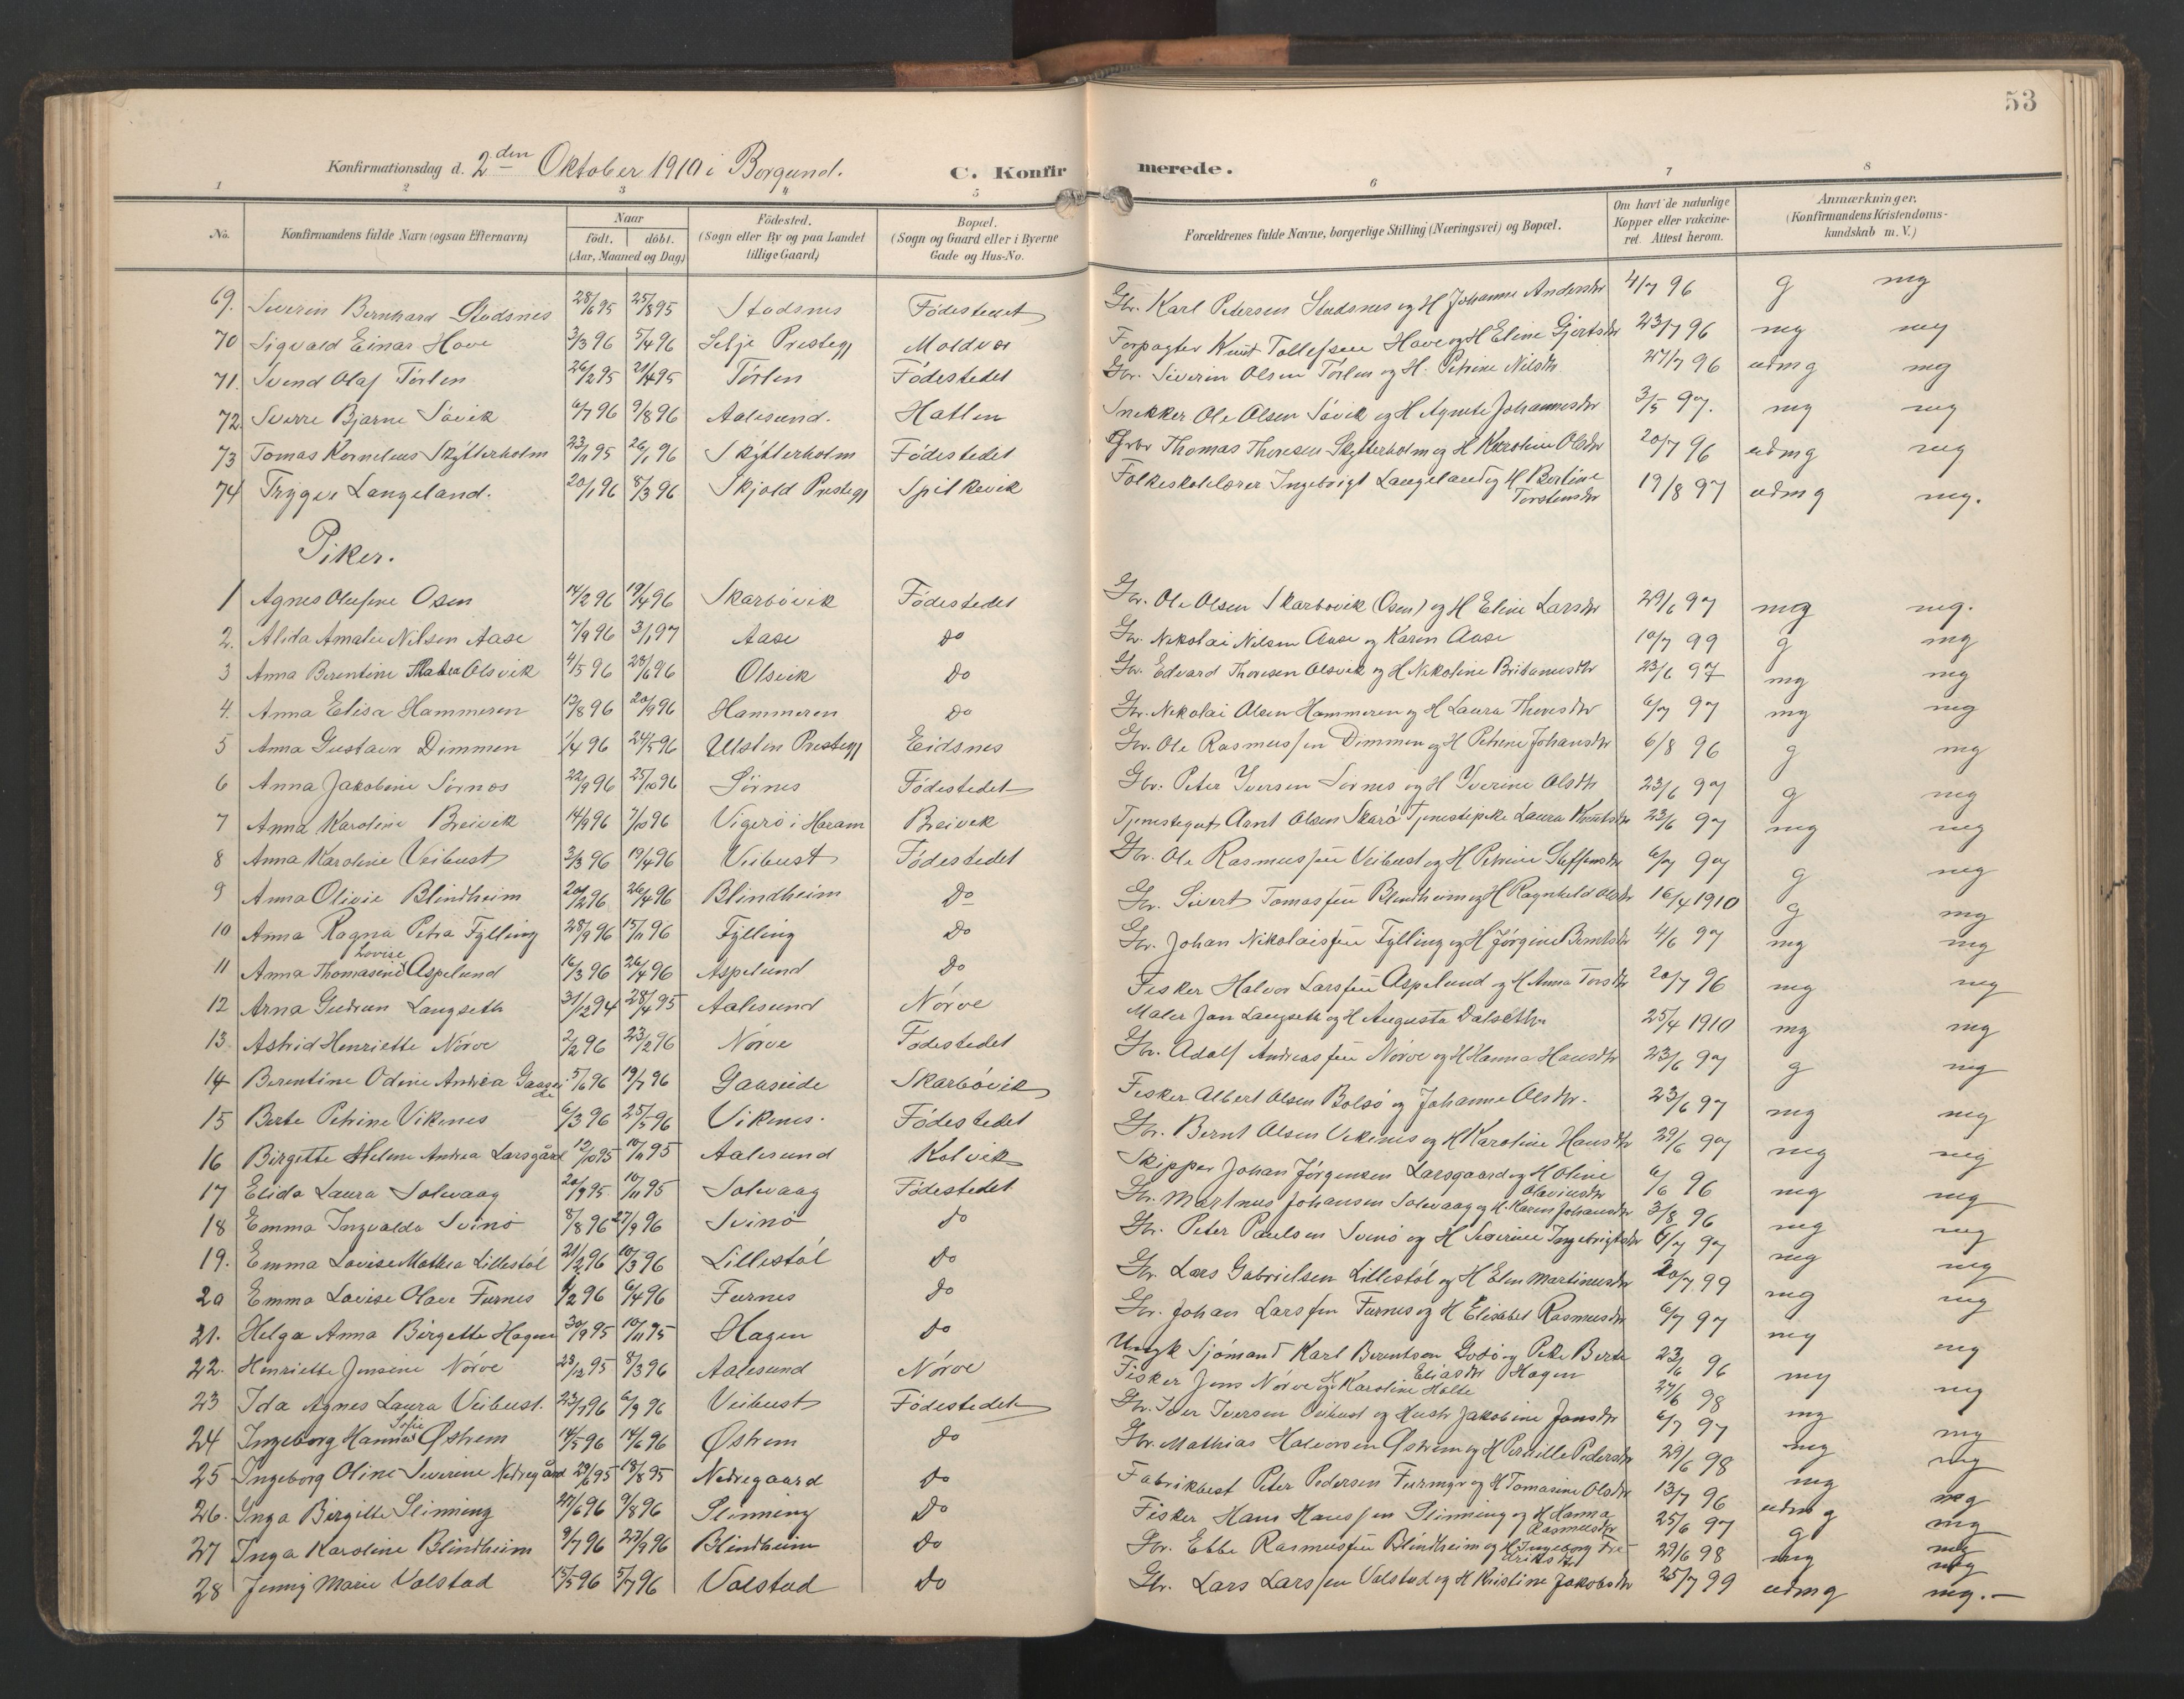 53
Konfirmationsdag d. 2den Oktober 1910 i Borgund. C. Konfirmerede.
1 2 3 4 5 6 7 8
No. Konfirmandens fulde Navn (ogsaa Efternavn) Naar födt. döbt. (Aar, Maaned og Dag) Födested. (Sogn eller By og paa Landet tillige Gaard) Bopæl. (Sogn og Gaard eller i Byerne Gade og Hus-No. Forældrenes fulde Navne, borgerlige Stilling (Næringsvei) og Bopæl. Om havt de naturlige Kopper eller vakcineret. Attest herom. Anmærkninger. (Konfirmandens Kristendomskundskab m. V.)
69. Severin Bernhard Stadsnes 28/6 95 25/8 95 Stadsnes Födestedet Gbr. Karl Petersen Stadsnes og H Johanne Andersdr 4/7 96 g mg
70 Sigvald Einar Hove 3/3 96 5/4 96 Selje Prestegj Moldvær Forpagter Knut Tollefsen Hove og H Eline Gjertsdr 23/7 96 mg mg
71. Svend Olaf Törlen 26/2 95 21/4 95 Törlen Födestedet Gbr. Severin Olsen Törlen og H. Petrine Nilsdr. 27/7 96 udmg mg
72. Sverre Bjarne Sövik 6/7 96 9/8 96 Aalesund. Hatlen Snekker Ole Olsen Sövik og H Agnete Johannesdr 3/5 97. mg mg
73 Tomas Kornelius Skytterholm 23/11 95 26/1 96 Skytterholm Födestedet Gbr Thomas Thoresen Skytterholm og H Karoline Olsdr 20/7 96 udmg mg
74 Trygve Langeland. 20/1 96 8/3 96 Skjold Prestegj Spilkevik Folkeskolelærer Ingebrigt Langeland og H Bertine Torstensdr 19/8 97 udmg mg.
Piker.
1 Agnes Olufine Osen 14/2 96 19/4 96 Skarbövik Födestedet Gbr. Ole Olsen Skarbövik (Osen) og H Eline Larsdr 29/6 97 mg mg.
2. Alida Amalie Nilsen Aase 7/9 96 3/1 97 Aase Do Gbr. Nikolai Nilsen Aase og Karen Aase 10/7 99 g mg
3 Anna Berentine Thalea Olsvik 4/5 96 28/6 96 Olsvik Do Gbr. Edvard Thoresen Olsvik og H Nikoline Britanusdr 23/6 97 mg mg
4. Anna Elisa Hammeren 13/8 96 20/9 96 Hammeren Do Gbr. Nikolai Olsen Hammeren og H Laura Thoresdr 6/7 97 mg mg
5 Anna Gustava Dimmen 1/4 96 24/5 96 Ulsten Prestegj Eidsnes Gbr. Ole Rasmussen Dimmen og H Petrine Johansdr 6/8 96 g mg
6 Anna Jakobine Sörnes 22/9 96 25/10 96 Sörnes Födestedet Gbr. Peter Iversen Sörnes og H Iverine Olsdr 23/6 97 g mg
7 Anna Karoline Breivik 14/9 96 7/10 96 Vigerö i Haram Breivik Tjenestegut Arnt Olsen Skarö Tjenestepike Laura Knutsdr 23/6 97 mg mg
8 Anna Karoline Veibust 3/3 96 19/4 96 Veibust Födestedet Gbr. Ole Rasmussen Veibust og H Petrine Steffensdr 6/7 97 g mg
9 Anna Olivie Blindheim 20/2 96 26/4 96 Blindheim Do Gbr. Sivert Tomassen Blindheim og H Ragnhild Olsdr 16/4 1910 g mg
10 Anna Ragna Petra Fylling 28/9 96 15/11 96 Fylling Do Gbr. Johan Nikolaissen Fylling og H Jörgine Berntsdr 4/6 97 mg mg
11 Anna Thomasine Lovise Aspelund 16/3 96 26/4 96 Aspelund Do Fisker Halvor Larssen Aspelund og H Anna Torsdr 20/7 96 mg mg
12 Arna Gudrun Langseth 31/12 94 28/4 95 Aalesund Nörve Maler Jan Langseth og H Augusta Dalseth 25/4 1910 mg mg
13. Astrid Henriette Nörve 2/2 96 23/2 96 Nörve Födestedet Gbr. Adolf Andreassen Nörve og H Hanna Hansdr 23/6 97 g mg
14 Berentine Odine Andrea Gaaseide 5/6 96 19/7 96 Gaaseide Skarbövik Fisker Albert Olsen Bolsö og Johanne Olsdr. 23/6 97 mg mg
15 Berte Petrine Vikenes 6/3 96 25/5 96 Vikenes. Födestedet Gbr. Bernt Olsen Vikenes og H Karoline Hansdr 29/6 97 mg mg
16 Birgitte Helene Andrea Larsgård 12/10 95 10/11 95 Aalesund Kolvik Skipper Johan Jörgensen Larsgaard og H Oline Olavinsdr 6/6 96 mg mg
17 Elida Laura Solevaag 20/9 95 10/11 95 Solevaag Födestedet Gbr. Martinus Johansen Solevaag og H. Karen Johansdr 3/8 96 mg mg
18 Emma Ingvalda Svinö 8/8 96 27/9 96 Svinö Do Gbr. Peter Paulsen Svinö og H Severine Ingebrigtsdr 6/7 97 mg mg
19. Emma Lovise Mathea Lillestöl 21/2 96 10/3 96 Lillestöl Do Gbr. Lars Gabrielsen Lillestöl og H Elen Martinusdr 20/7 99 mg mg
20 Emma Lovise Olave Furnes 9/2 96 6/4 96 Furnes Do Gbr. Johan Larssen Furnes og H Elisabet Rasmusdr 6/7 97 mg mg
21. Helga Anna Birgitte Hagen 30/9 95 10/11 95 Hagen Do Ungk Sjömand Karl Berentsen Godö og Pike Berte Eliasdr Hagen 23/6 96 mg mg
22. Henriette Jensine Nörve 23/12 95 8/3 96 Aalesund Nörve Fisker Jens Nörve og H Karoline Holte 27/6 98 mg mg
23 Ida Agnes Laura Veibust. 23/7 96 6/9 96 Veibust Födestedet Gbr. Iver Iversen Veibust og Hustr Jakobine Jonsdr 6/7 97 mg mg
24 Ingeborg Hanna Sofie Østrem 14/5 96 14/6 96 Østrem Do Gbr. Mathias Halvorsen Østrem og H Pernille Pedersdr 29/6 98 mg mg
25 Ingeborg Oline Severine Nedregård 29/6 95 18/8 95 Nedregaard Do Fabrikbest Peter Pedersen Furmyr og H Tomasine Olsdr 13/7 96 mg mg
26. Inga Birgitte Slinning 27/6 96 9/8 96 Slinning Do Fisker Hans Hanssen Slinning og H Hanna Rasmusdr 25/6 97 udmg mg
27 Inga Karoline Blindheim 9/7 96 27/9 96 Blindheim Do Gbr. Ebbe Rasmussen Blindheim og H Ingeborg Eriksdr 29/6 98 g mg
28 Jenny Marie Valstad 15/5 96 5/7 96 Valstad Do Gbr. Lars Larssen Valstad og H Kristine Jakobsdr 25/7 99 udmg mg.